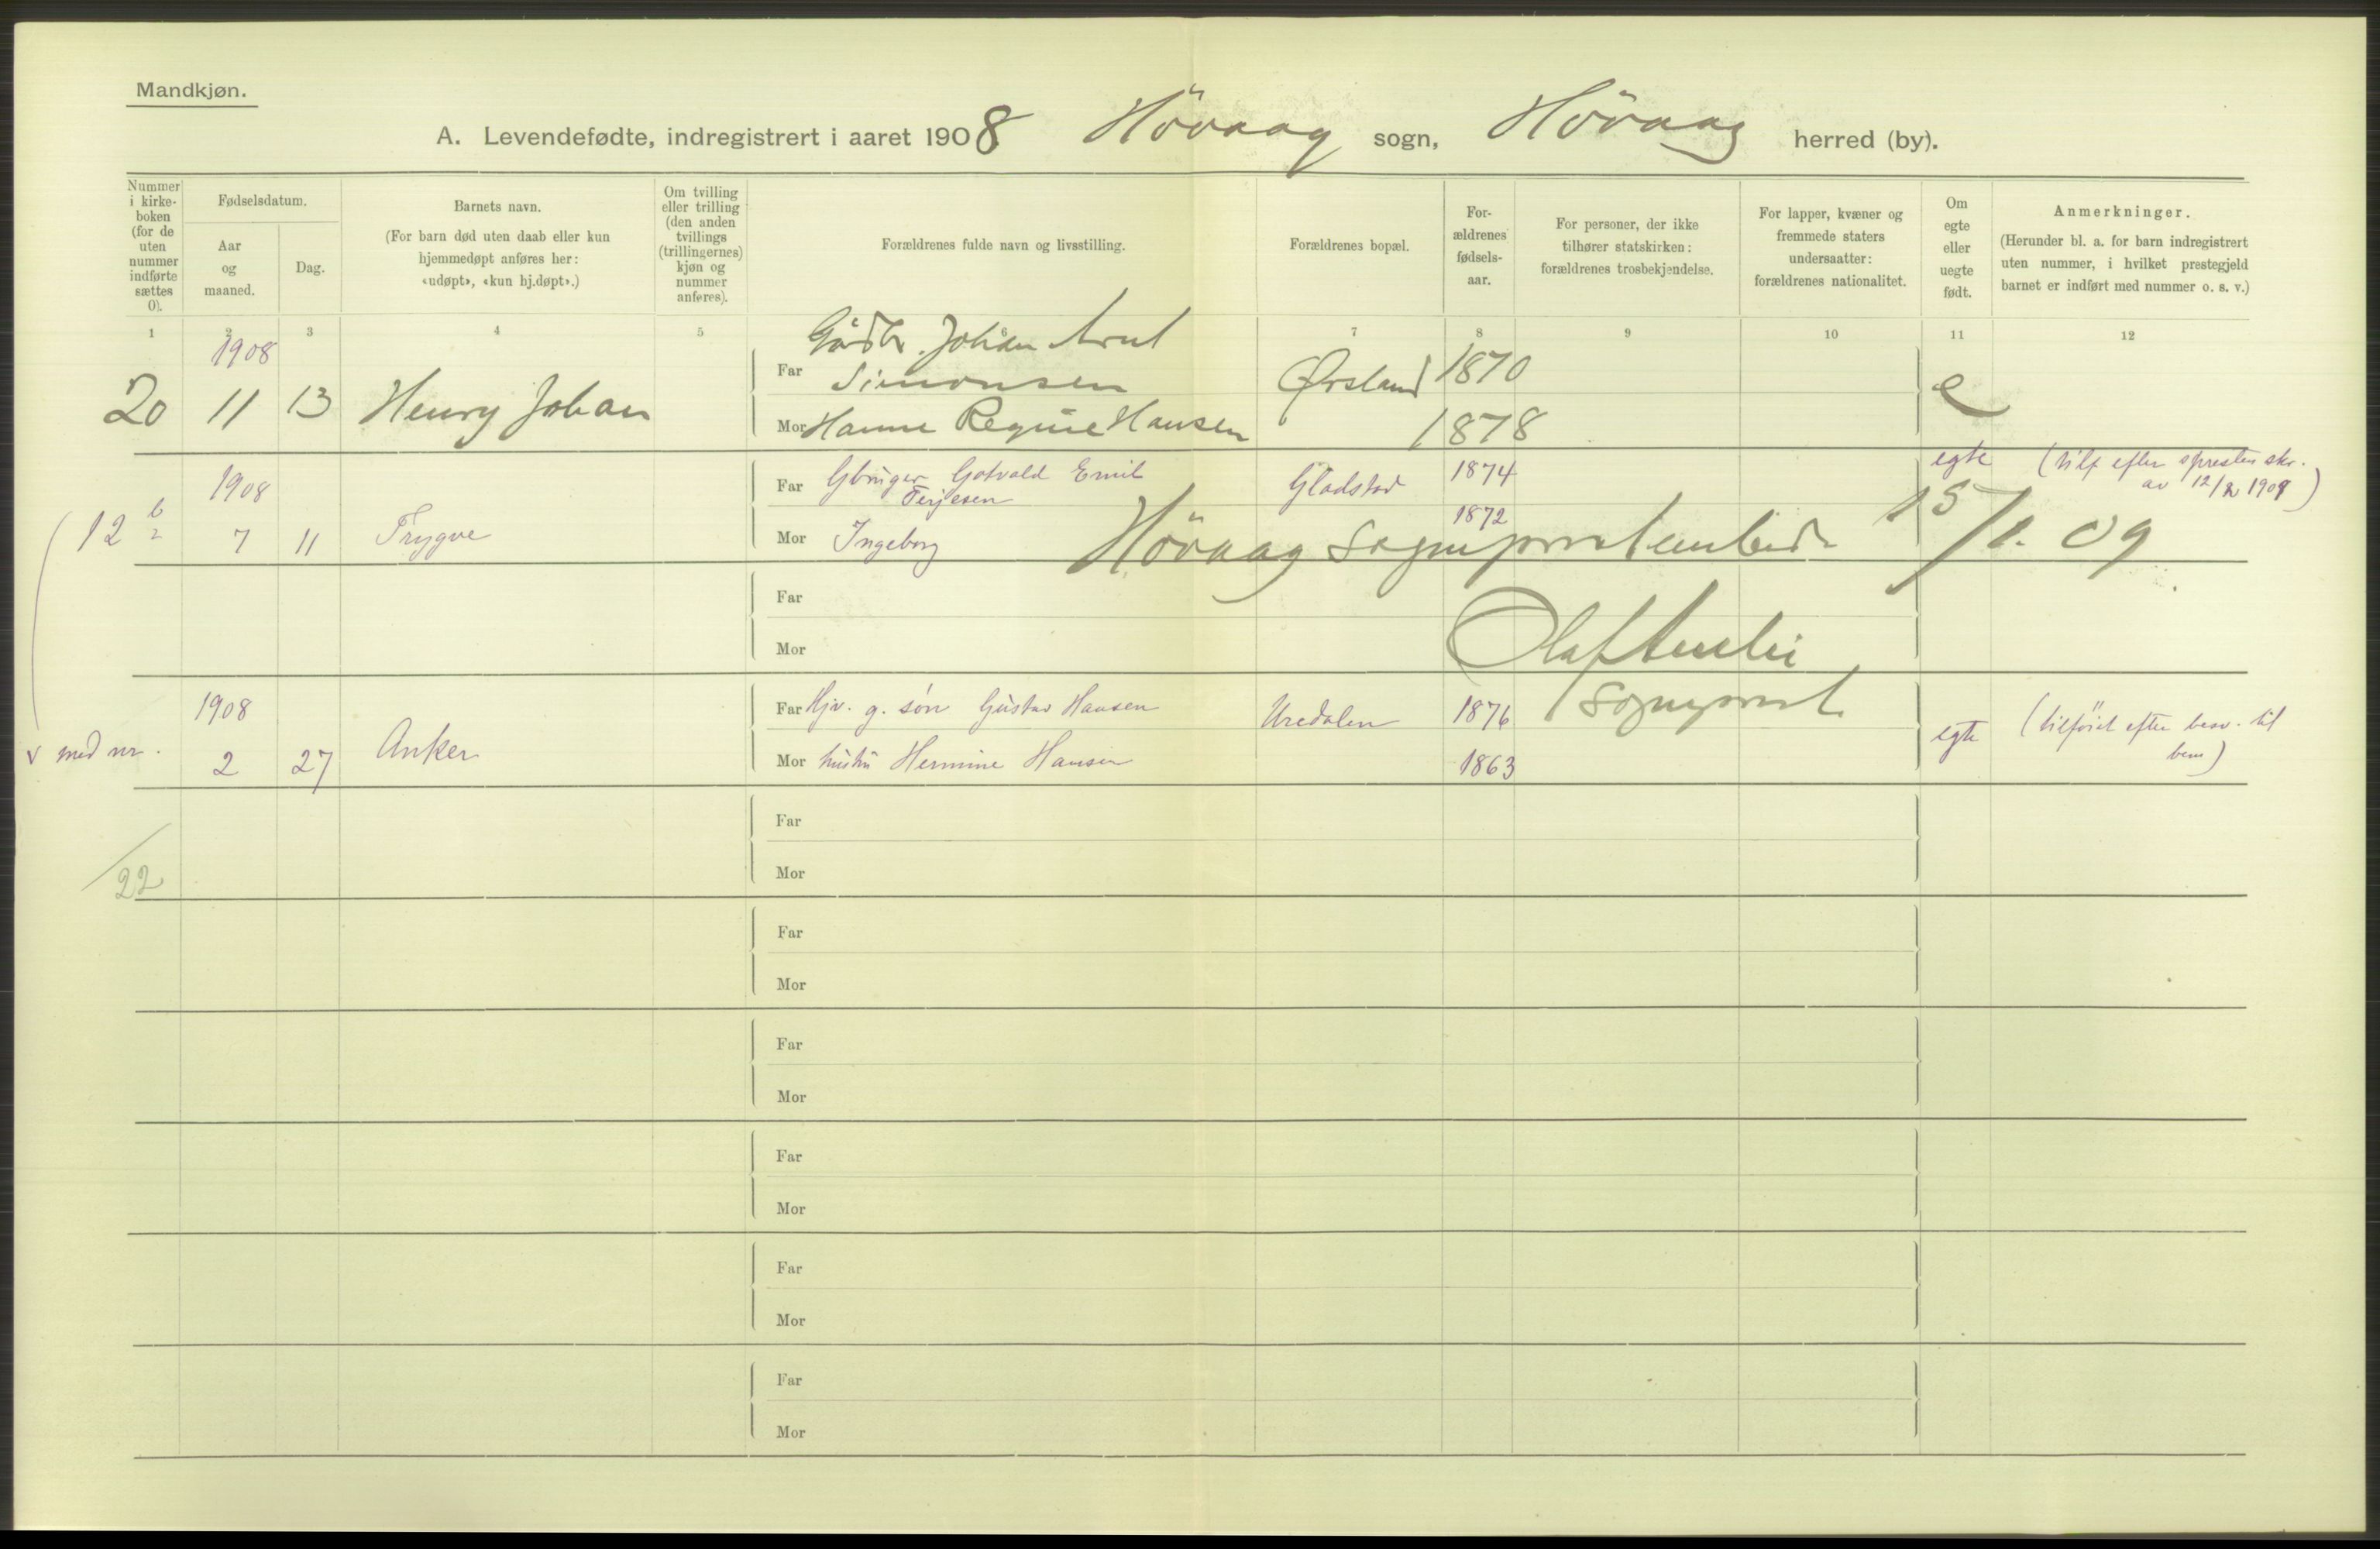 Mandkjøn.
A. Levendefødte, indregistrert i aaret 1908 Hövaag sogn, Hövaag herred (by).
Nummer i kirke-boken (for de uten nummer indførte sættes 0).
Fødselsdatum.
Aar og maaned.
Dag.
Barnets navn.
(For barn død uten daab eller kun
hjemmedøpt anføres her:
«udøpt», «kun hj.døpt».)
Om tvilling
eller trilling
(den anden
tvillings
(trillingernes)
kjøn og
nummer
anføres).
Forældrenes fulde navn og livsstilling.
Forældrenes bopæl.
For-
ældrenes
fødsels-
aar.
For personer, der ikke
tilhører statskirken:
forældrenes trosbekjendelse.
For lapper, kvæner og
fremmede staters
undersaatter:
forældrenes nationalitet.
Om
egte
eller
uegte
født.
Anmerkninger.
(Herunder bl. a. for barn indregistrert
uten nummer, i hvilket prestegjeld
barnet er indført med nummer o. s. v.)
1 2 3 4 5 6 7 8 9 10 11 12
1908
20 11 13 Henry Johan
Far Gårdbr. Johan Arnt
Simonsen Ørsland 1870 e
Mor Hanne Regine Hansen 1878
1908
12 b 7 11 Trygve
Far Gbruger Gotvald Emil
Terjesen Gladstad 1874 egte
(tilf efter sprestens skr.
av 12/2 1909)
Mor Ingeborg 1872
Hövaag sogneprestembede 15/1. 09
Far
Mor
Olaf
Sogneprest
1908
v med nr.
2 27 Anker
Far Hjv. g. søn Gustav Hansen Uredalen 1876 egte
(tilföiet efter besv. til
bem)
Mor hustru Hermine Hansen 1863
Far
Mor
22
Far
Mor
Far
Mor
Far
Mor
Far
Mor
Far
Mor